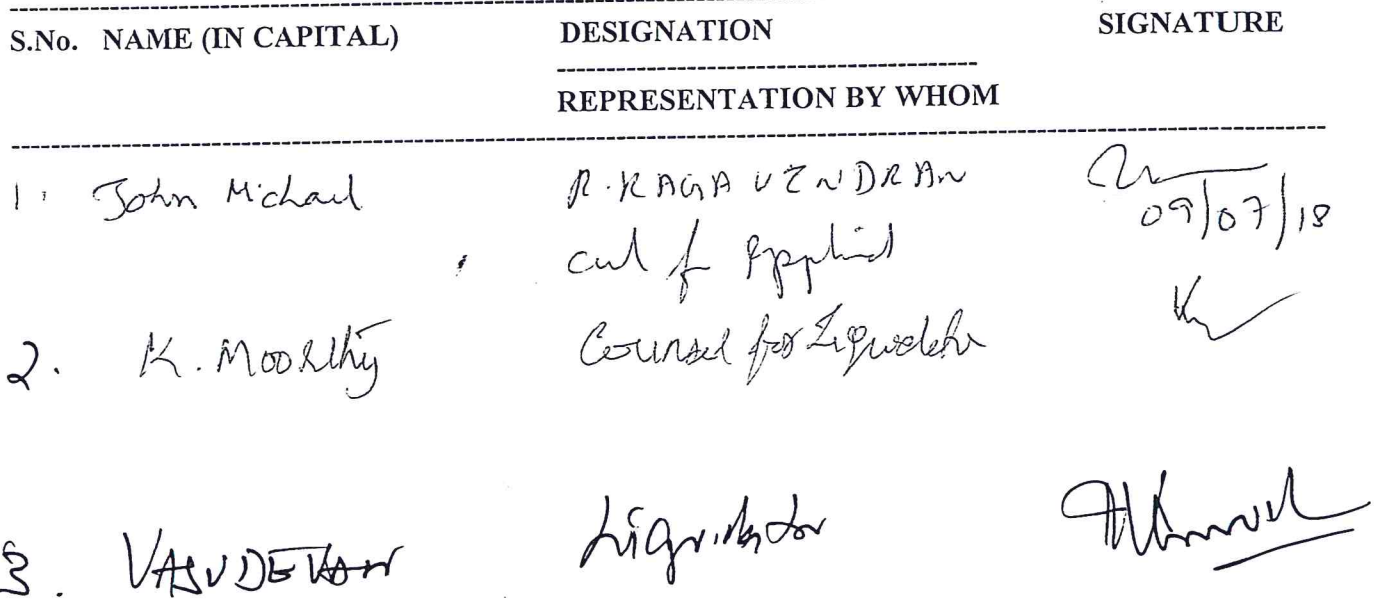 S.No. NAME (IN CAPITAL) DESIGNATION SIGNATURE
REPRESENTATION BY WHOM
1. John Michael R. RAGAVENDRAN
09/07/18
2. K. Moorthy Counsel for Liquidator
3. VASUDEVAN Liquidator